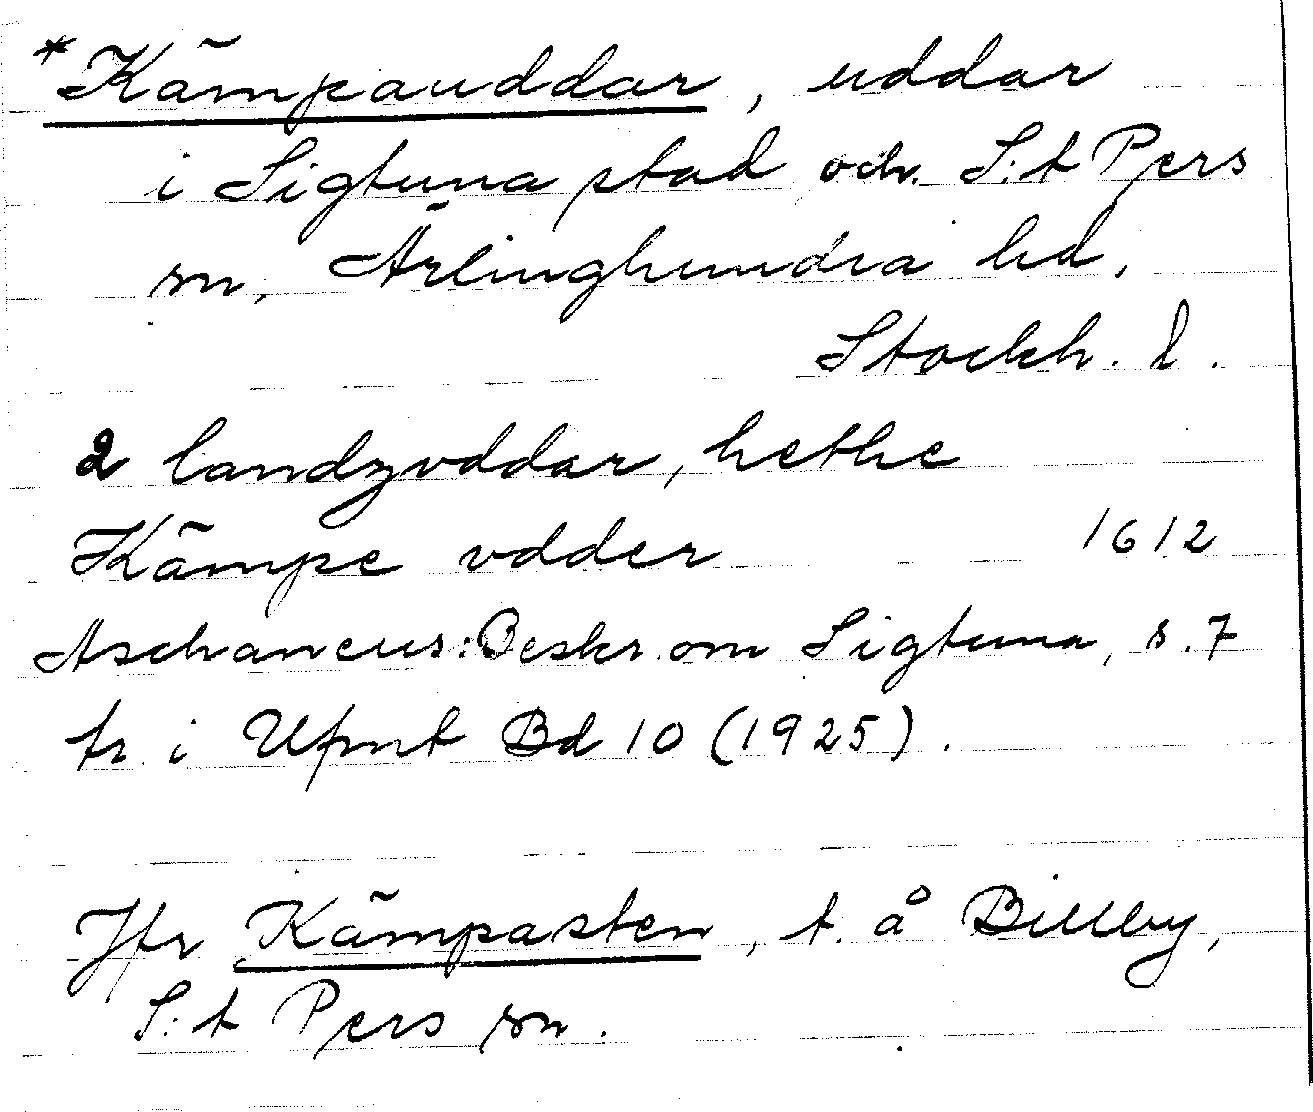 *Kämpauddar, uddar
i Sigtuna stad och S:t Pers
sn, Ärlinghundra hd,
Stockh. l.
2 landzvddar, hethe
Kämpe vdder 1612
Aschaneus: Beskr. om Sigtuna, s. 7
tr. i Ufmt Bd 10 (1925).
Jfr Kämpasten, t. å Billby,
S:t Pers sn.